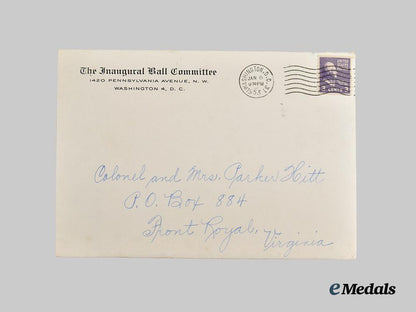 The Inaugural Ball Committee
1420 PENNSYLVANIA AVENUE, N. W.
WASHINGTON 4, D. C.
WASHINGTON, D.C.
JAN
PM
UNITED STATES
3 CENTS
Colonel and Mrs. Parker Hitt
P. O. Box 884
Front Royal,
Virginia
eMedals